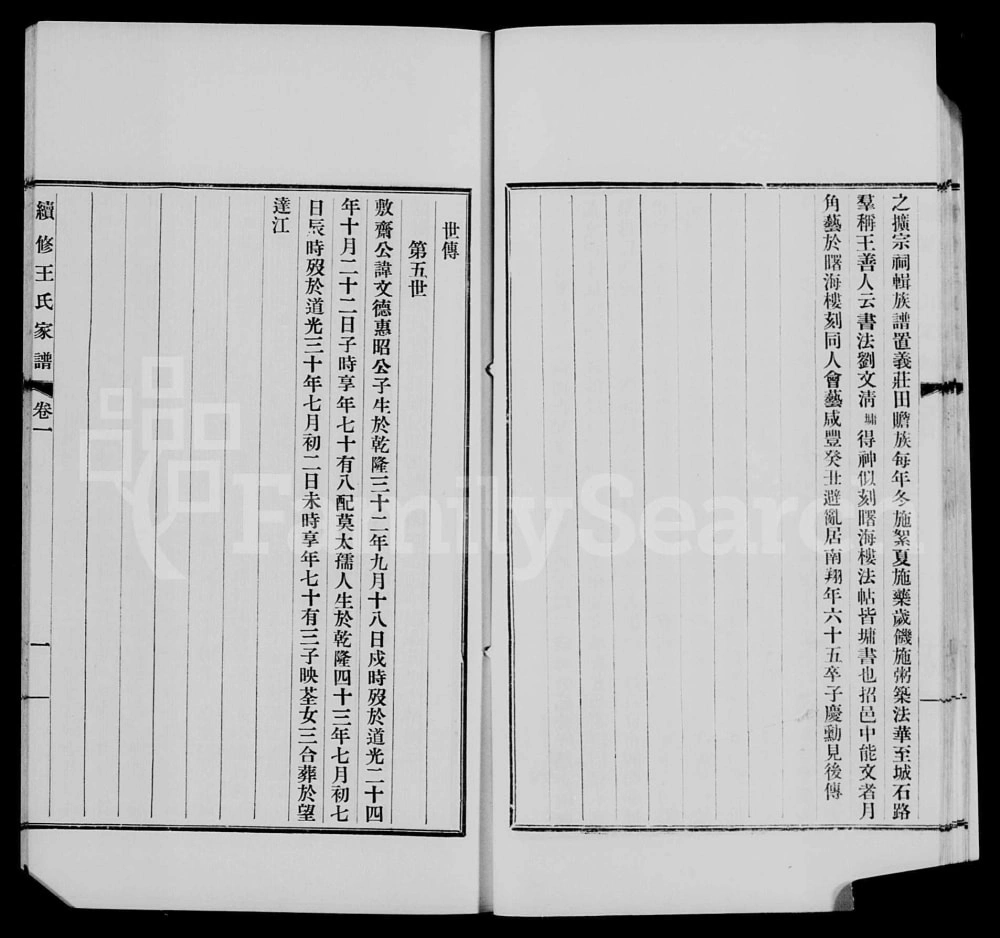 之擴宗祠輯族譜置義莊田贍族每年冬施絮夏施藥歲饑施粥築法華至城石路
羣稱王善人云書法劉文清墉得神似刻曙海樓法帖皆墉書也招邑中能文者月
角藝於曙海樓刻同人會藝咸豐癸丑避亂居南翔年六十五卒子慶勳見後傳
世傳
第五世
敷齋公諱文德惠昭公子生於乾隆三十二年九月十八日戌時歿於道光二十四
年十月二十二日子時享年七十有八配莫太孺人生於乾隆四十三年七月初七
日辰時歿於道光三十年七月初二日未時享年七十有三子映荃女三合葬於望
達江
續修王氏家譜 卷一 一
FamilySearch